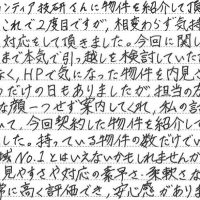 ンティア技研くんに物件を紹介して頂
これで2度目ですが、相変わらず気持
対応をして頂きました。今回に関し
まで本気で引っ越しを検討していた
なく、HPで気になった物件を内見さ
っただけの日もありましたが、担当の方
な顔一つせず案内してくれ、私の話
て、今回契約した物件を紹介して
した。持っている物件の数だけでい
域No.1とはいえないかもしれませんが
見やすさや対応の素早さ・柔軟さな
常に高く評価でき、安心感があります